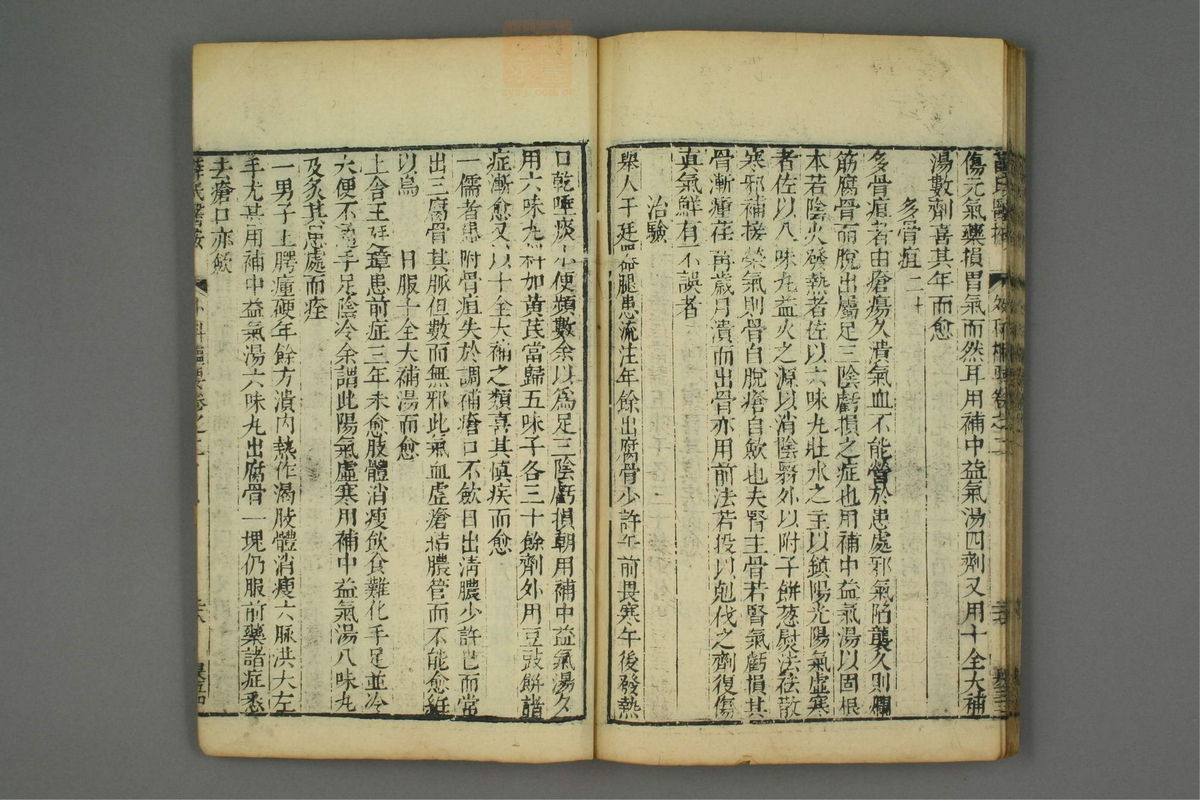 傷元氣藥損胃氣而然耳用補中益氣湯四劑又用十全大補
湯數劑喜其年而愈
多骨疽二十
多骨疽者由瘡瘍久潰氣血不能營於患處邪氣陷襲久則爛
筋腐骨而脫出屬足三陰虧損之症也用補中益氣湯以固根
本若陰火發熱者佐以六味丸壯水之主以鎮陽光陽氣虛寒
者佐以八味丸益火之源以消陰翳外以附子餅葱熨法祛散
寒邪補接榮氣則骨自脫瘡自歛也夫腎主骨若腎氣虧損其
骨漸瘇荏苒歲月潰而出骨亦用前法若投以剋伐之劑復傷
真氣鮮有不誤者
治驗
舉人于廷器腿患流注年餘出腐骨少許午前畏寒午後發熱
口乾唾痰小便頻數余以爲足三陰虧損朝用補中益氣湯夕
用六味丸料加黃芪當歸五味子各三十餘劑外用豆豉餅諸
症漸愈又以十全大補之類喜其慎疾而愈
一儒者患附骨疽失於調補瘡口不歛日出清膿少許已而常
出三腐骨其脈但數而無邪此氣血虛瘡結膿管而不能愈紝
以烏 日服十全大補湯而愈
上舍王廷璋患前症三年未愈肢體消瘦飲食難化手足並冷
大便不通手足陰冷余謂此陽氣虛寒用補中益氣湯八味丸
及灸其患處而痊
一男子上腭瘇硬年餘方潰內熱作渴肢體消瘦六脉洪大左
手尤甚用補中益氣湯六味丸出腐骨一塊仍服前藥諸症悉
去瘡口亦歛
薛氏醫按 卷之二